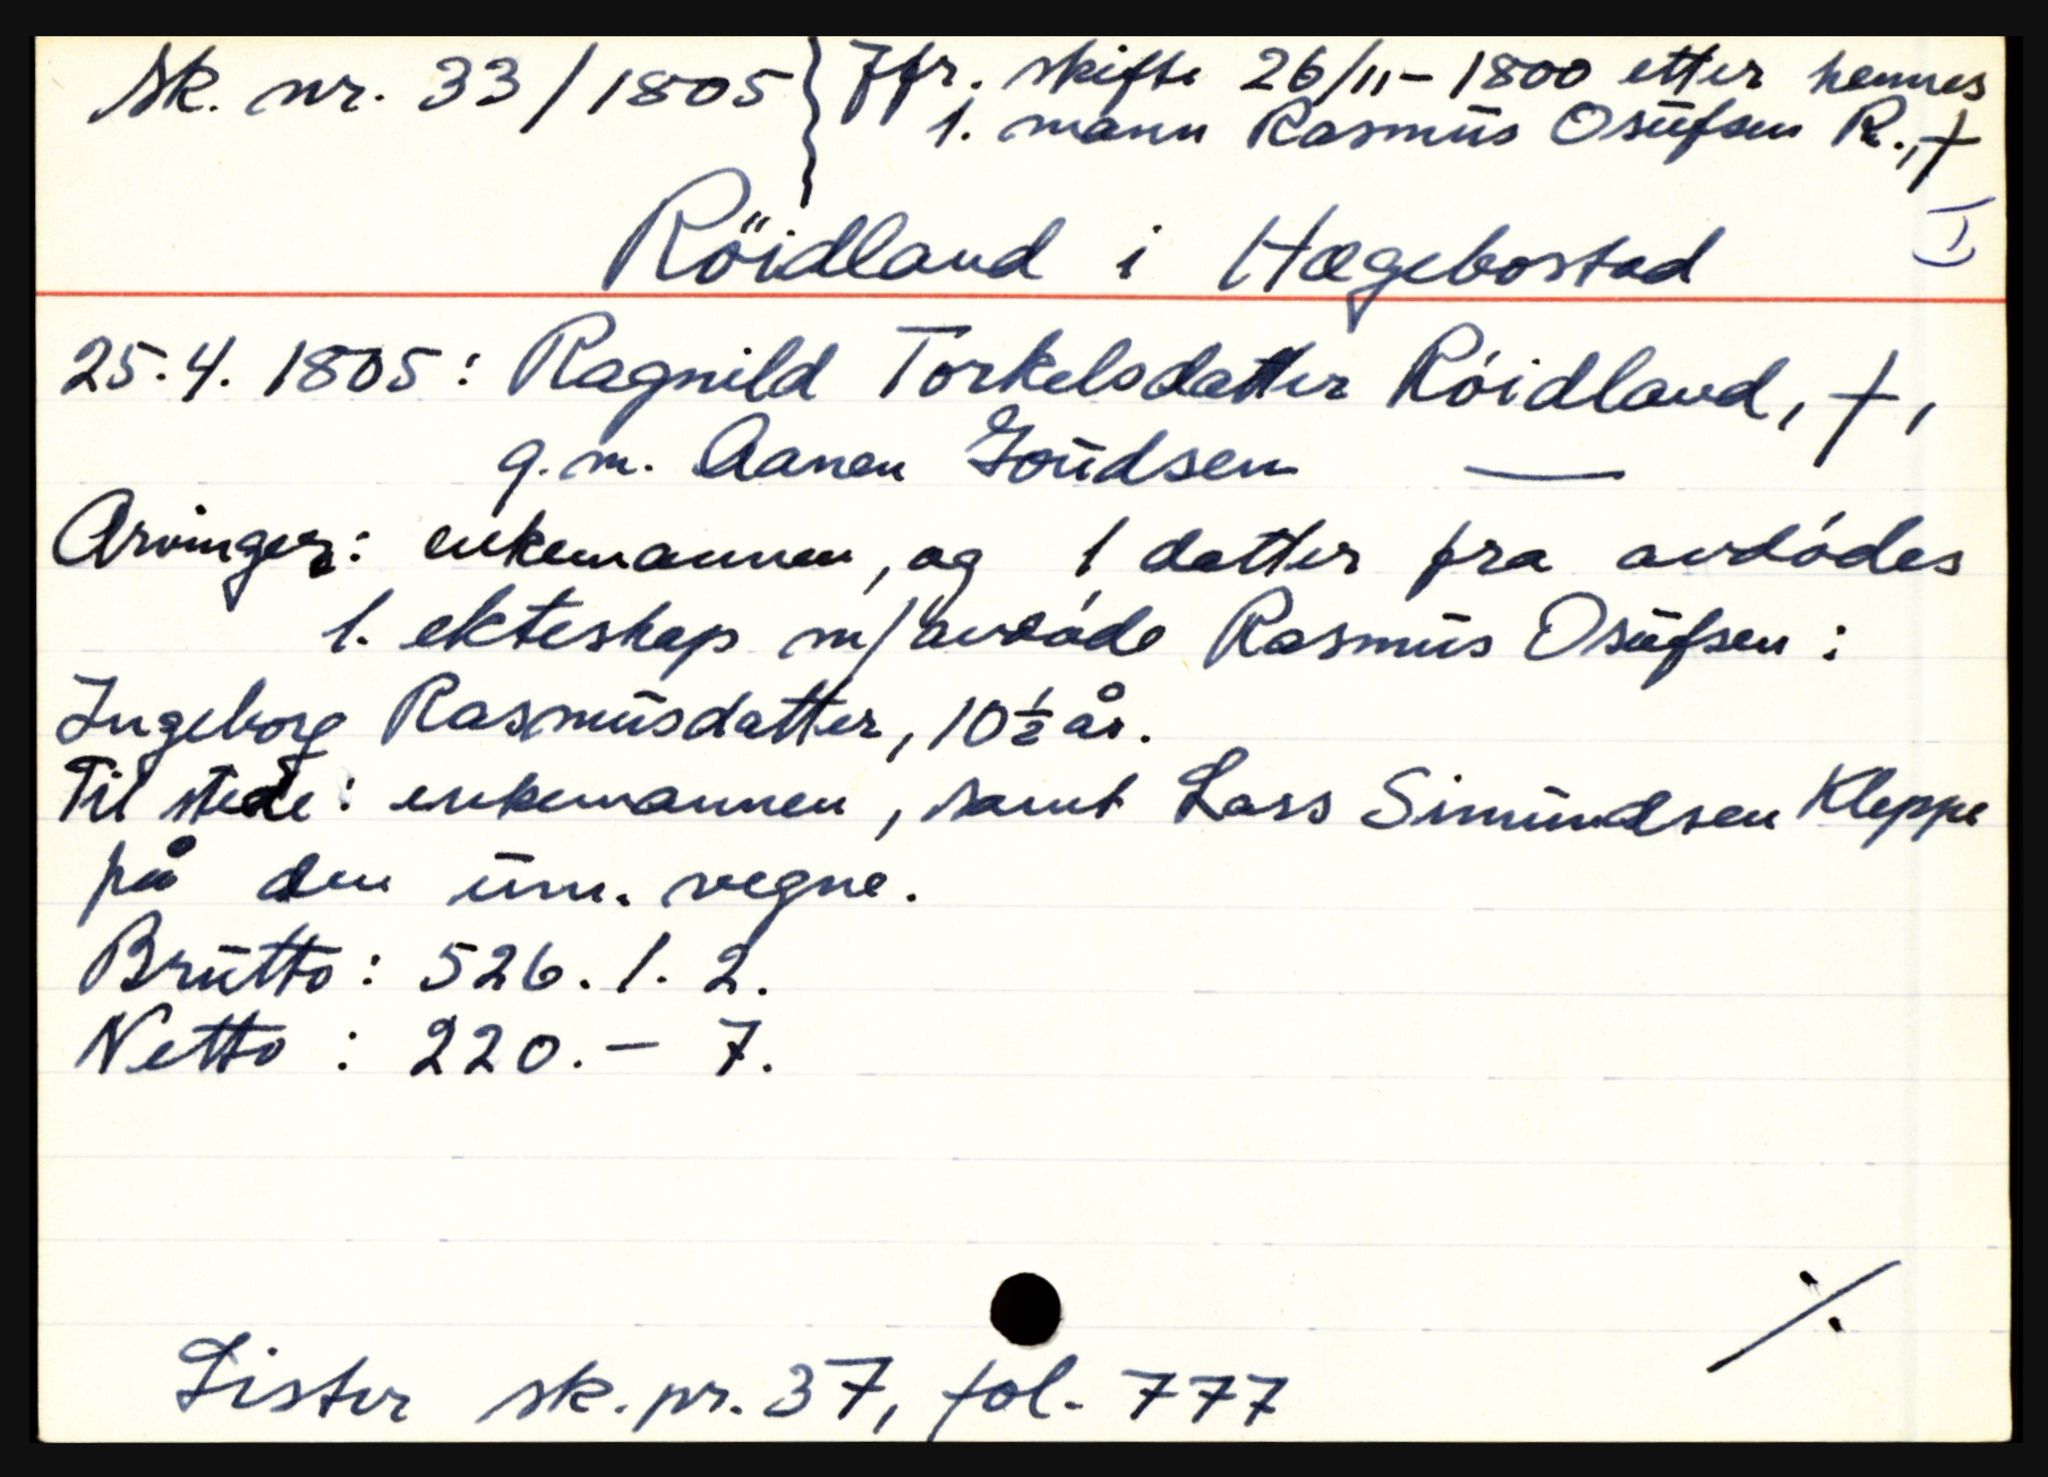 Sk. nr. 33/1805 } Jfr. skifte 26/11-1800 etter hennes
1. mann Rasmus Osufsen R., †
Röidland i Hægebostad
25.4.1805: Ragnild Torkelsdatter Röidland, †,
g.m. Aanen Goudsen —
Arvinger: enkemannen, og 1 datter fra avdódes
1. ekteskap m/avdóde Rasmus Osufsen:
Ingeborg Rasmusdatter, 10½ år.
Til stede: enkemannen, samt Lars Simundsen Kleppe
på den um. vegne.
Brutto: 526. 1. 2.
Netto: 220. - 7.
Lister sk. pr. 37, fol. 777